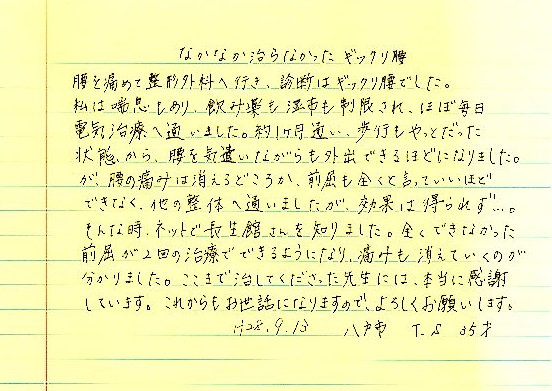 なかなか治らなかったギックリ腰
腰を痛めて整形外科へ行き、診断はギックリ腰でした。
私は喘息もあり、飲み薬も湿布も制限され、ほぼ毎日
電気治療へ通いました。約1ヶ月通い、歩行もやっとだった
状態から、腰を気遣いながらも外出できるほどになりました。
が、腰の痛みは消えるどころか、前屈も全くと言っていいほど
できなく、他の整体へ通いましたが、効果は得られず…。
そんな時、ネットで長生館さんを知りました。全くできなかった
前屈が2回の治療でできるようになり、痛みも消えていくのが
分かりました。ここまで治してくださった先生には、本当に感謝
しています。これからもお世話になりますので、よろしくお願いします。
H28.9.13 八戸市 T.S 35才